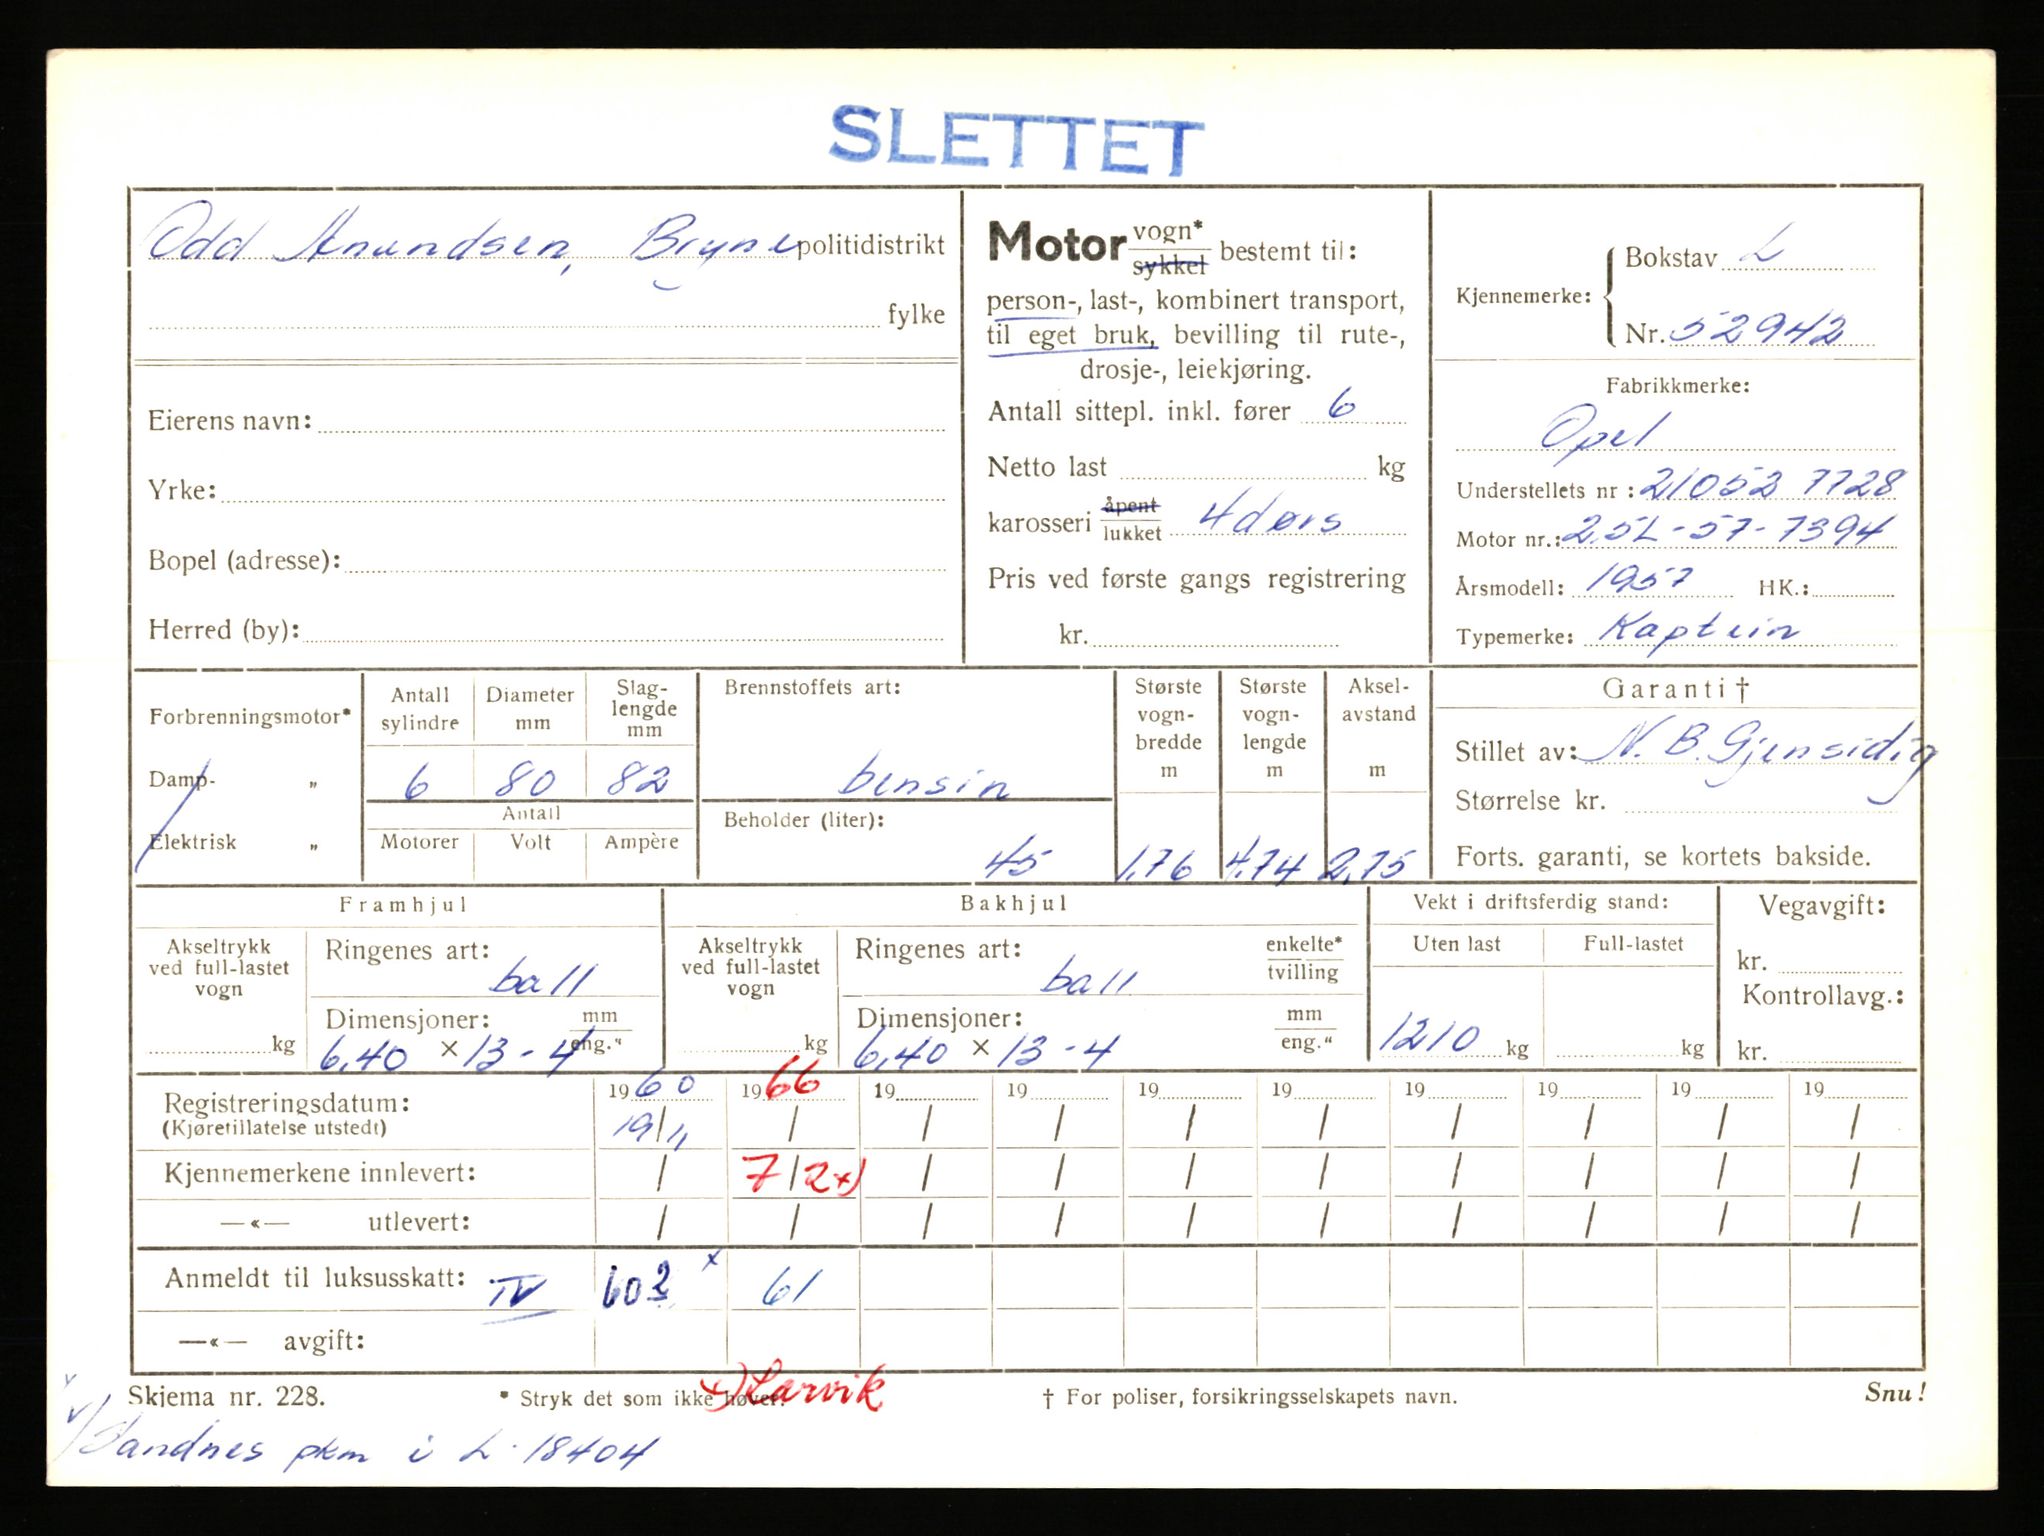 SLETTET
Odd Anundsen, Bryne politidistrikt
fylke
Eierens navn:
Yrke:
Bopel (adresse):
Herred (by):
Motor vogn* sykkel bestemt til:
person-, last-, kombinert transport,
til eget bruk, bevilling til rute-,
drosje-, leiekjøring.
Antall sittepl. inkl. fører 6
Netto last kg
karosseri åpent lukket 4dørs
Pris ved første gangs registrering
kr.
Kjennemerke: Bokstav L
Nr. 52942
Fabrikkmerke:
Opel
Understellets nr : 21052 7728
Motor nr.: 2,5L-57-7394
Årsmodell: 1957 HK.:
Typemerke: Kaptein
Forbrenningsmotor*
Damp- „
Elektrisk „
Antall sylindre
Diameter mm
Slag-lengde mm
6 80 82
Antall
Motorer Volt Ampère
Brennstoffets art:
bensin
Beholder (liter):
45
Største vogn-bredde m
1,76
Største vogn-lengde m
4.74
Aksel-avstand m
2,75
Garanti †
Stillet av: N.B. Gjensidig
Størrelse kr.
Forts. garanti, se kortets bakside.
Framhjul
Akseltrykk ved full-lastet vogn
kg
Ringenes art:
ball
Dimensjoner: mm eng."
6,40 × 13 - 4
Bakhjul
Akseltrykk ved full-lastet vogn
kg
Ringenes art: enkelte* tvilling
ball
Dimensjoner: mm eng."
6,40 × 13 - 4
Vekt i driftsferdig stand:
Uten last Full-lastet
1210 kg kg
Vegavgift:
kr.
Kontrollavg.:
kr.
1960 1966 19 19 19 19 19 19 19 19
Registreringsdatum:
(Kjøretillatelse utstedt) 19/11 / / / / / / / / /
Kjennemerkene innlevert: / 7/2 x) / / / / / / / /
—«— utlevert: / / / / / / / / / /
Anmeldt til luksusskatt: IV 602 x 61
—«— avgift:
Skjema nr. 228. * Stryk det som ikke høver. x) Larvik † For poliser, forsikringsselskapets navn. Snu!
Sandnes pkm i L-18404